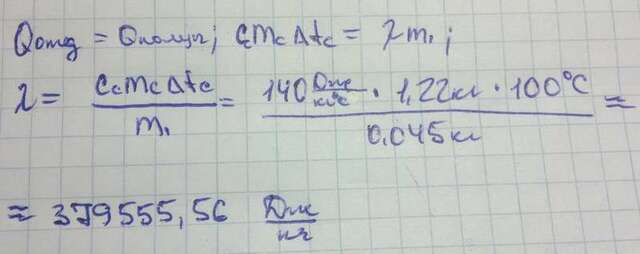 Qотд = Qполуч; CcmcΔtc = λm₁;
λ = CcmcΔtc / m₁ = 140 Дж/кг°C · 1,22кг · 100°C / 0,045кг ≈
≈ 379555,56 Дж/кг